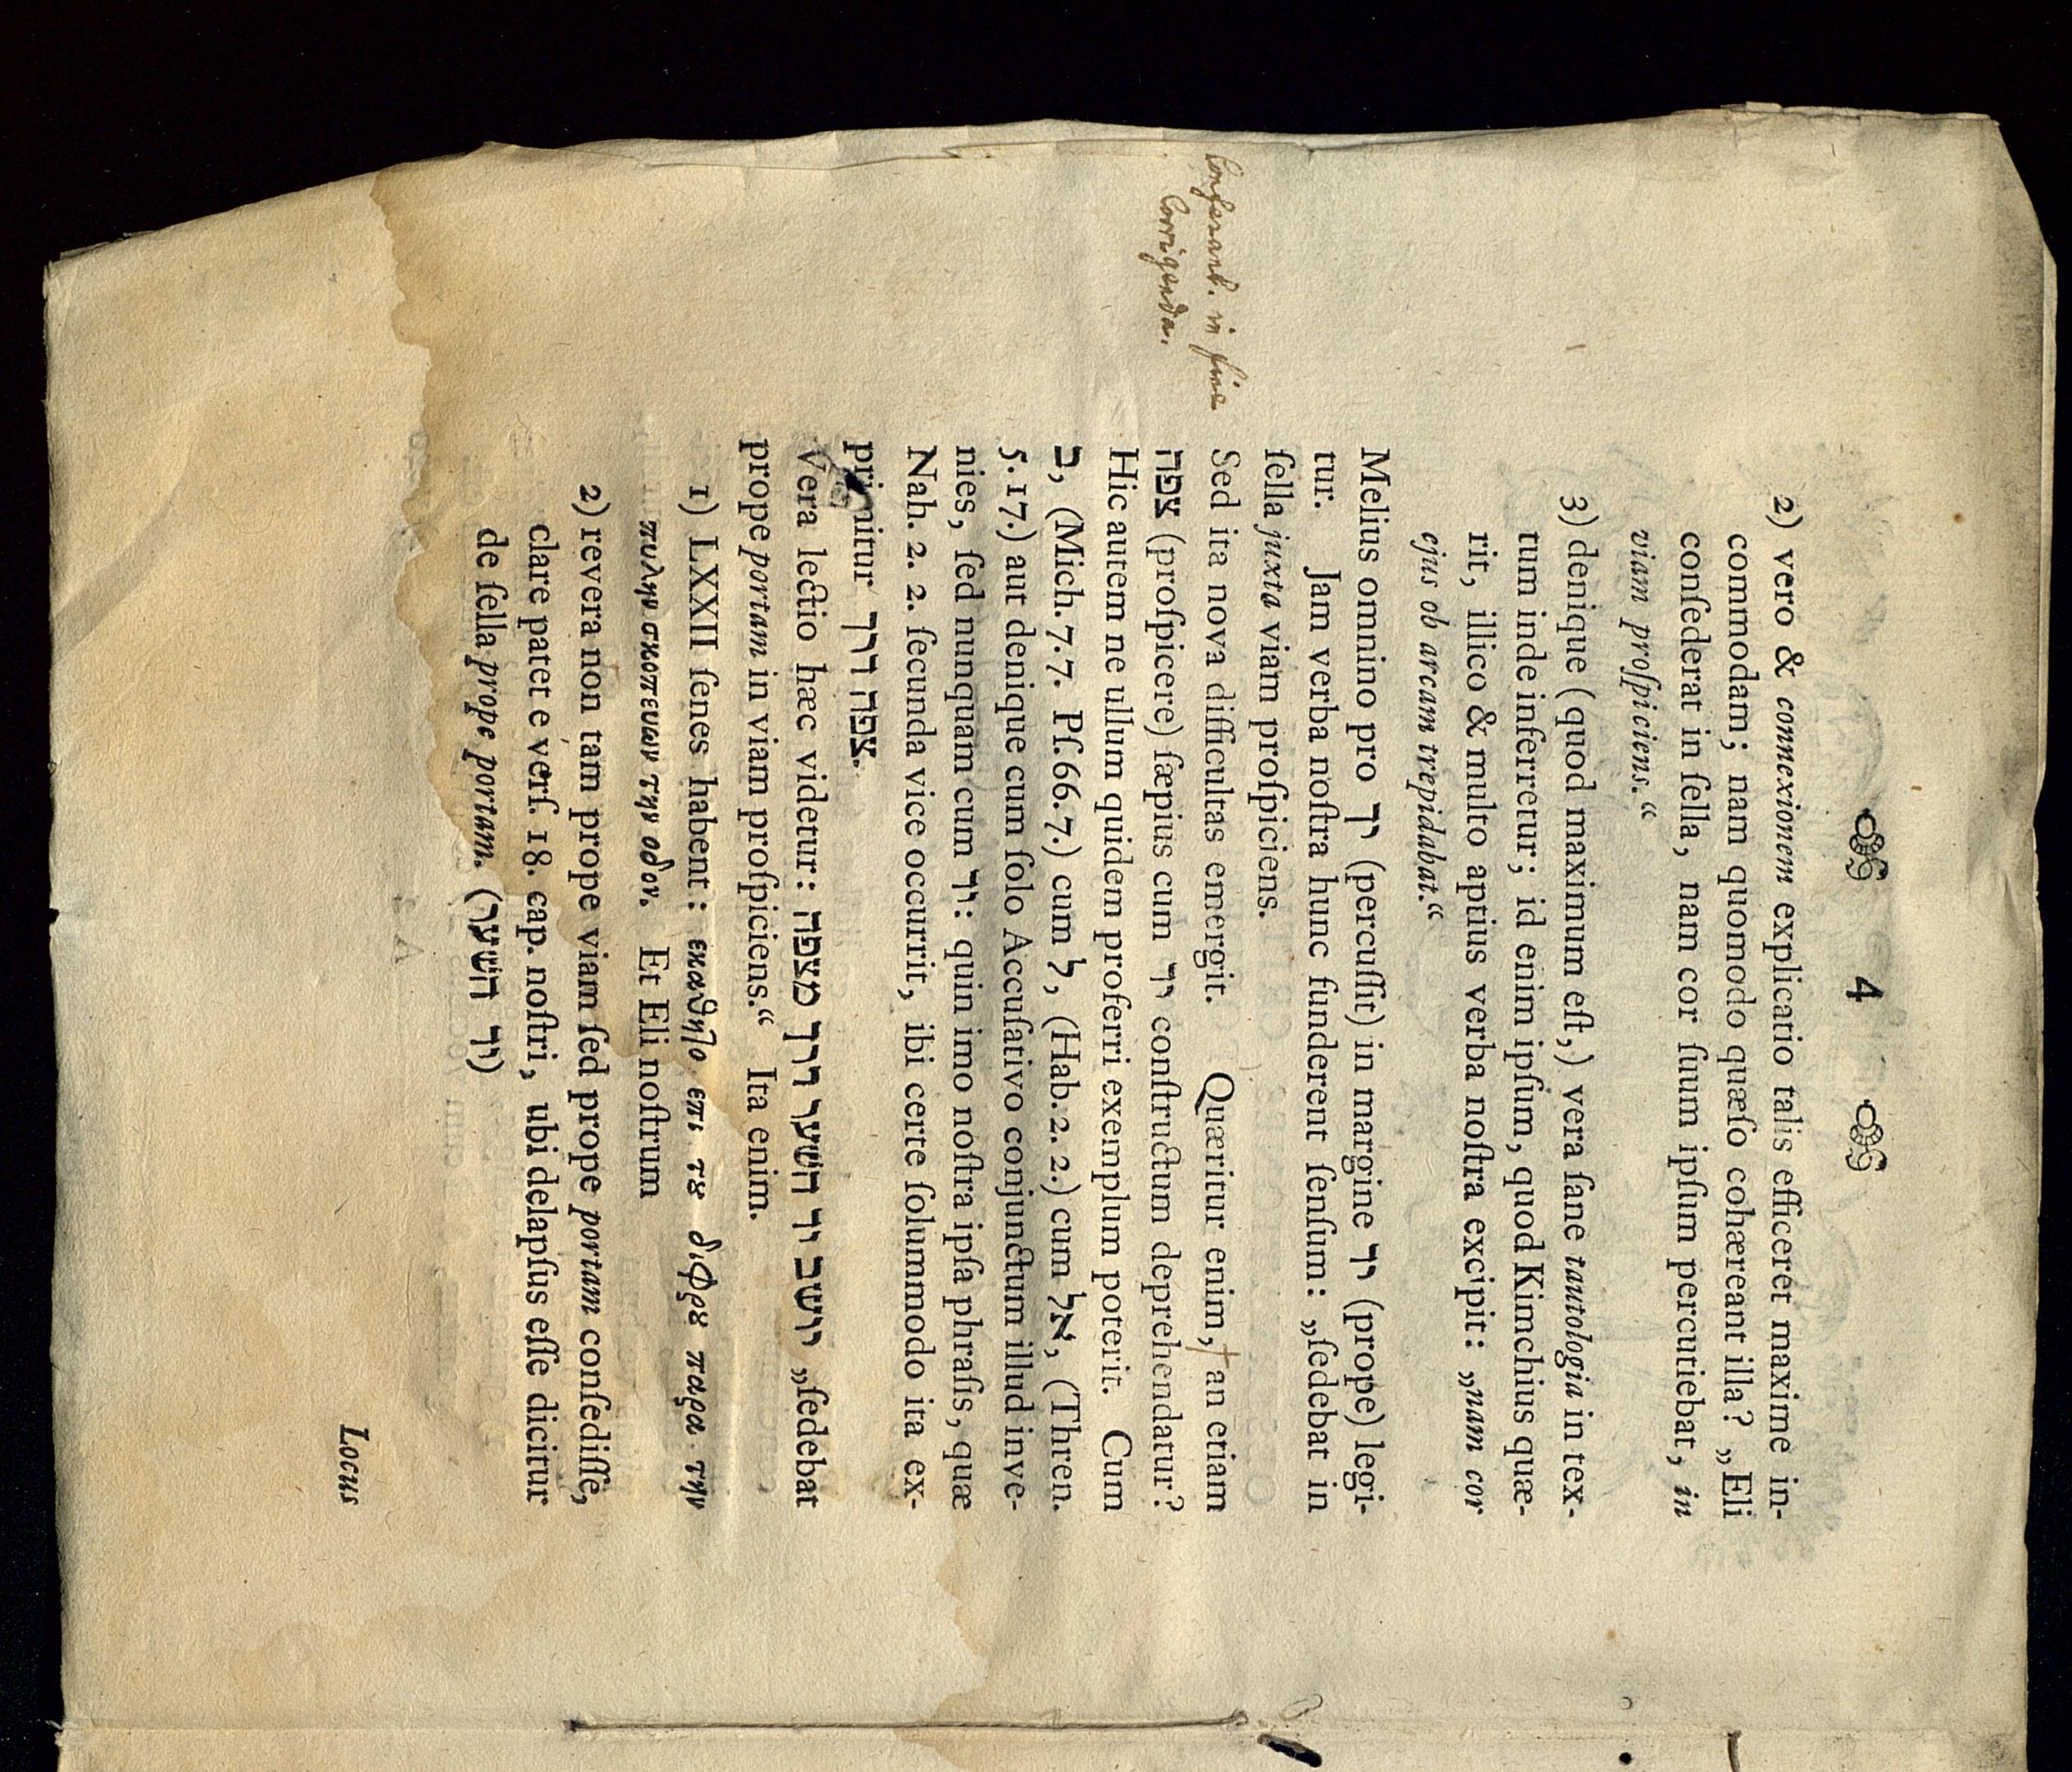 4
2) vero & connexionem explicatio talis efficeret maxime in-
commodam; nam quomodo quæſo cohæreant illa? „Eli
conſederat in ſella, nam cor ſuum ipſum percutiebat, in
viam proſpiciens.“
3) denique (quod maximum eſt,) vera ſane tautologia in tex-
tum inde inferretur; id enim ipſum, quod Kimchius quæ-
rit, illico & multo aptius verba noſtra excipit: „nam cor
ejus ob arcam trepidabat.“
Melius omnino pro יך (percuſſit) in margine יד (prope) legi-
tur. Jam verba noſtra hunc funderent ſenſum: „ſedebat in
ſella juxta viam proſpiciens.
Sed ita nova difficultas emergit. Quæritur enim,† an etiam
צפה (proſpicere) ſæpius cum יד conſtructum deprehendatur?
Hic autem ne ullum quidem proferri exemplum poterit. Cum
ב, (Mich. 7. 7. Pſ. 66. 7.) cum ל, (Hab. 2. 2.) cum אל, (Thren.
5. 17.) aut denique cum ſolo Accuſativo conjunctum illud inve-
nies, ſed nunquam cum יד: quin imo noſtra ipſa phraſis, quæ
Nah. 2. 2. ſecunda vice occurrit, ibi certe ſolummodo ita ex-
primitur צפה דרך.
Vera lectio hæc videtur: יושב יד השער דרך מצפה „ſedebat
prope portam in viam proſpiciens.“ Ita enim.
1) LXXII ſenes habent: εκαθηƖο επι τȣ διφρȣ παρα την
πυλην σκοπευων την οδον. Et Eli noſtrum
2) revera non tam prope viam ſed prope portam conſediſſe,
clare patet e verſ. 18. cap. noſtri, ubi delapſus eſſe dicitur
de ſella prope portam. (יד השער)
Locus
Conferant. in fine
Corrigenda.